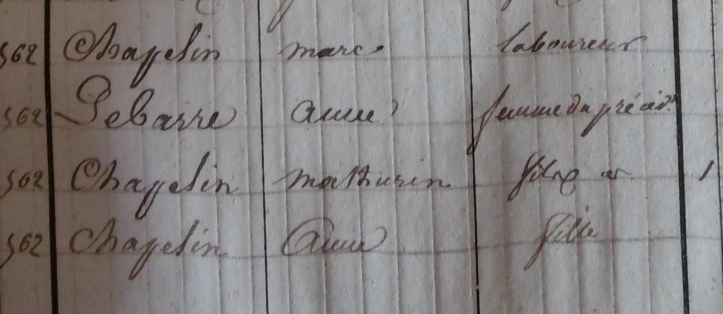 562 Chapelin marc laboureur
562 Lebarre anne femme du précédt
562 Chapelin mathurin fils 1
562 Chapelin Anne fille